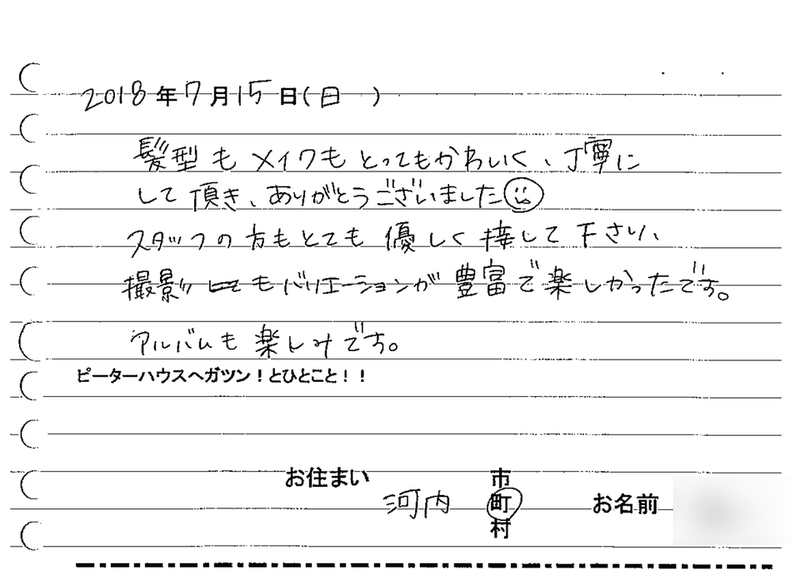 2018年7月15日(日 )
髪型もメイクもとってもかわいく、丁寧に
して頂き、ありがとうございました
スタッフの方もとても優しく接して下さい、
撮影もバリエーションが豊富で楽しかったです。
アルバムも楽しみです。
ピーターハウスへガツン!とひとこと!!
お住まい 河内 市町村 お名前